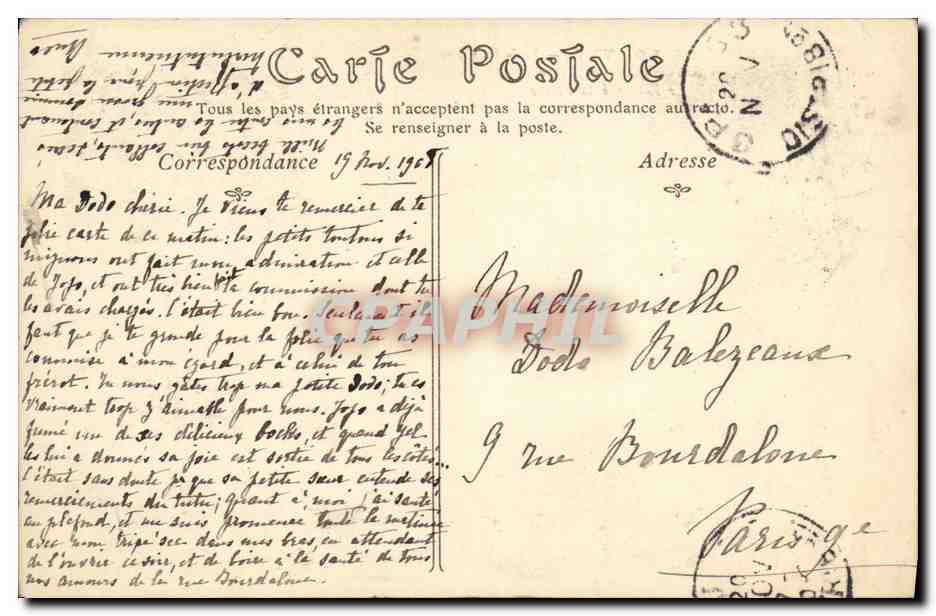 Carte Postale
Tous les pays étrangers n'acceptent pas la correspondance au recto.
Se renseigner à la poste.
Correspondance
19 Nov. 1908
Adresse
Ma Dodo chérie. Je viens te remercier de ta
jolie carte de ce matin : les petits toutous si
mignons ont fait mon admiration et celle
de Jojo, et ont très bien fait la commission dont tu
les avais chargés. C'était bien bon. Seulement il
faut que je te gronde pour la folie que tu as
commise à mon égard, et à celui de ton
frérot. Tu nous gâtes trop ma petite Dodo ; tu es
vraiment trop aimable pour nous. Jojo a déjà
fumé un de ses délicieux bocks, et quand
les lui a donnés sa joie est sortie de tous les côtés...
C'était sans doute pr que sa petite sœur entende ses
remerciements du tutu ; quant à moi j'ai sauté
au plafond, et me suis promenée toute la matinée
avec mon dans mes bras, en attendant
de l'ouvrir ce soir, et de boire à la santé de tous
nos amours de la rue Bourdaloue.
Mille bécots bien
les uns contre les autres, et contenant
une grosse
d'affection pour la petite
Mademoiselle
Dodo Balezeaux
9 rue Bourdaloue
Paris 9e
CPAPHIL